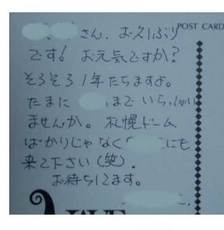 POST CARD
さん、お久しぶり
です! お元気ですか?
そろそろ1年たちますよ。
たまに まで いらっしゃい
ませんか。札幌ドーム
ばかりじゃなく にも
来て下さい(笑)。
お待ちしてます。